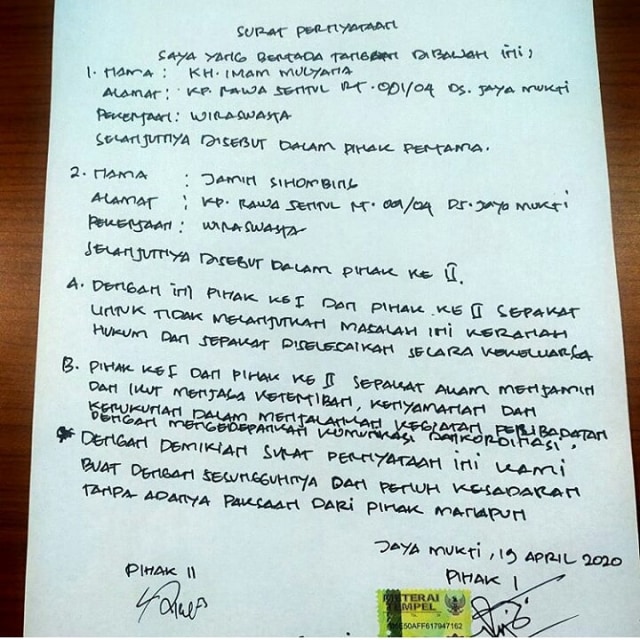 SURAT PERNYATAAN
SAYA YANG BERTADA TANGGAN DIBAWAH INI;
1. NAMA : KH. IMAM MULYANA
ALAMAT : KP. RAWA SENTUL RT. 001/04 DS. JAYA MUKTI
PEKERJAAN : WIRASWASTA
SELANJUTNYA DISEBUT DALAM PIHAK PERTAMA.
2. NAMA : JAMIN SIHOMBING
ALAMAT : KP. RAWA SENTUL RT. 001/04 DS. JAYA MUKTI
PEKERJAAN : WIRASWASTA
SELANJUTNYA DISEBUT DALAM PIHAK KE II.
A. DENGAN INI PIHAK KE I DAN PIHAK KE II SEPAKAT
UNTUK TIDAK MELANJUTKAN MASALAH INI KERANAH
HUKUM DAN SEPAKAT DISELESAIKAN SECARA KEKELUARGA
B. PIHAK KE I DAN PIHAK KE II SEPAKAT AKAN MENJAMIN
DAN IKUT MENJAGA KETERTIBAN, KENYAMANAN DAN
KERUKUNAN DALAM MENJALANKAN KEGIATAN PERIBADATAN
DENGAN MENGEDEPANKAN KOMUNIKASI DAN KORDINASI,
DENGAN DEMIKIAN SURAT PERNYATAAN INI KAMI
BUAT DENGAN SESUNGGUHNYA DAN PENUH KESADARAN
TANPA ADANYA PAKSAAN DARI PIHAK MANAPUN
JAYA MUKTI, 19 APRIL 2020
PIHAK II
PIHAK I
METERAI
TEMPEL
50AFF617947162